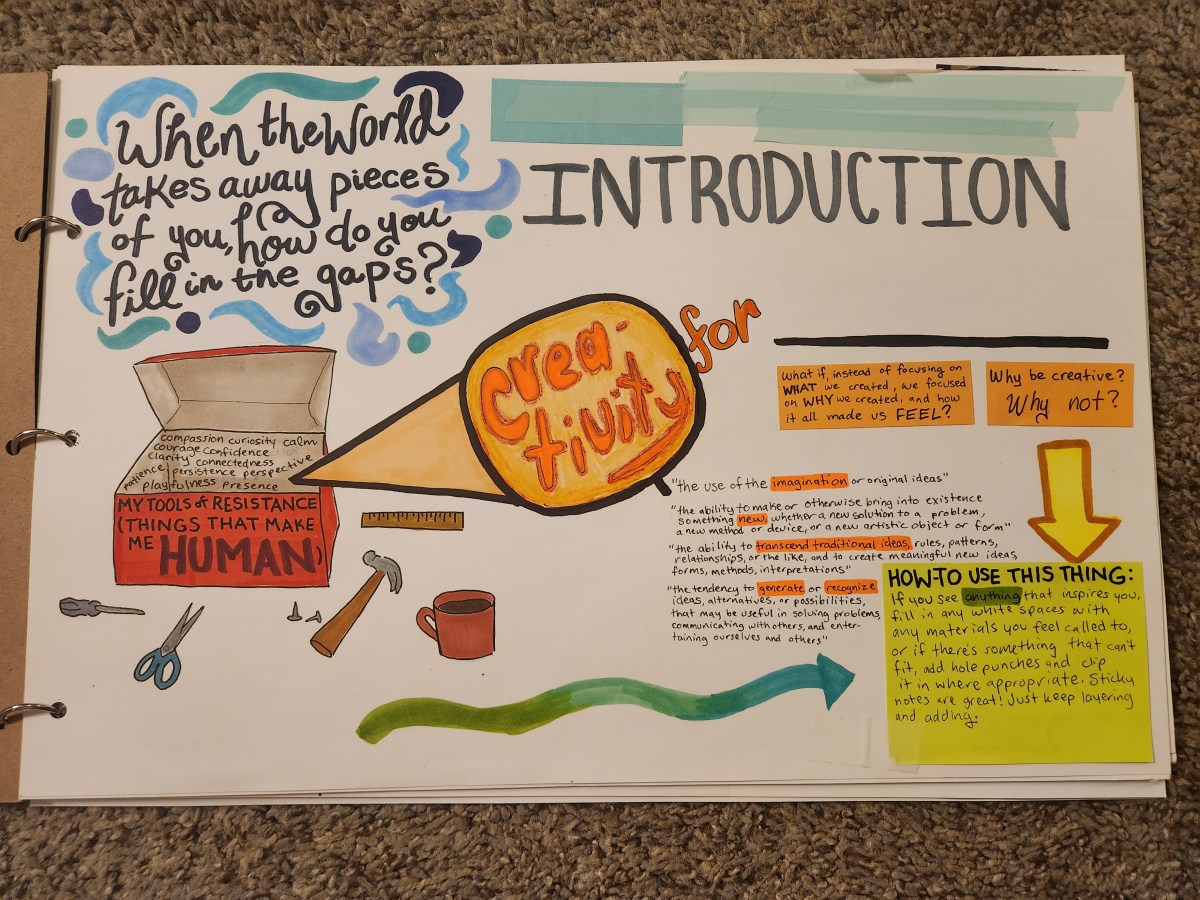 When the world
takes away pieces
of you, how do you
fill in the gaps?
INTRODUCTION
Crea-
tivity
for
What if, instead of focusing on
WHAT we created, we focused
on WHY we created, and how
it all made us FEEL?
Why be creative?
Why not?
compassion curiosity calm
courage confidence
clarity connectedness
patience persistence perspective
playfulness presence
MY TOOLS of RESISTANCE
(THINGS THAT MAKE
ME HUMAN)
"the use of the imagination or original ideas"
"the ability to make or otherwise bring into existence
something new, whether a new solution to a problem,
a new method or device, or a new artistic object or form"
"the ability to transcend traditional ideas, rules, patterns,
relationships, or the like, and to create meaningful new ideas,
forms, methods, interpretations"
"the tendency to generate or recognize
ideas, alternatives, or possibilities,
that may be useful in solving problems,
communicating with others, and enter-
taining ourselves and others"
HOW-TO USE THIS THING:
If you see anything that inspires you,
fill in any white spaces with
any materials you feel called to,
or if there's something that can't
fit, add hole punches and clip
it in where appropriate. Sticky
notes are great! Just keep layering
and adding.